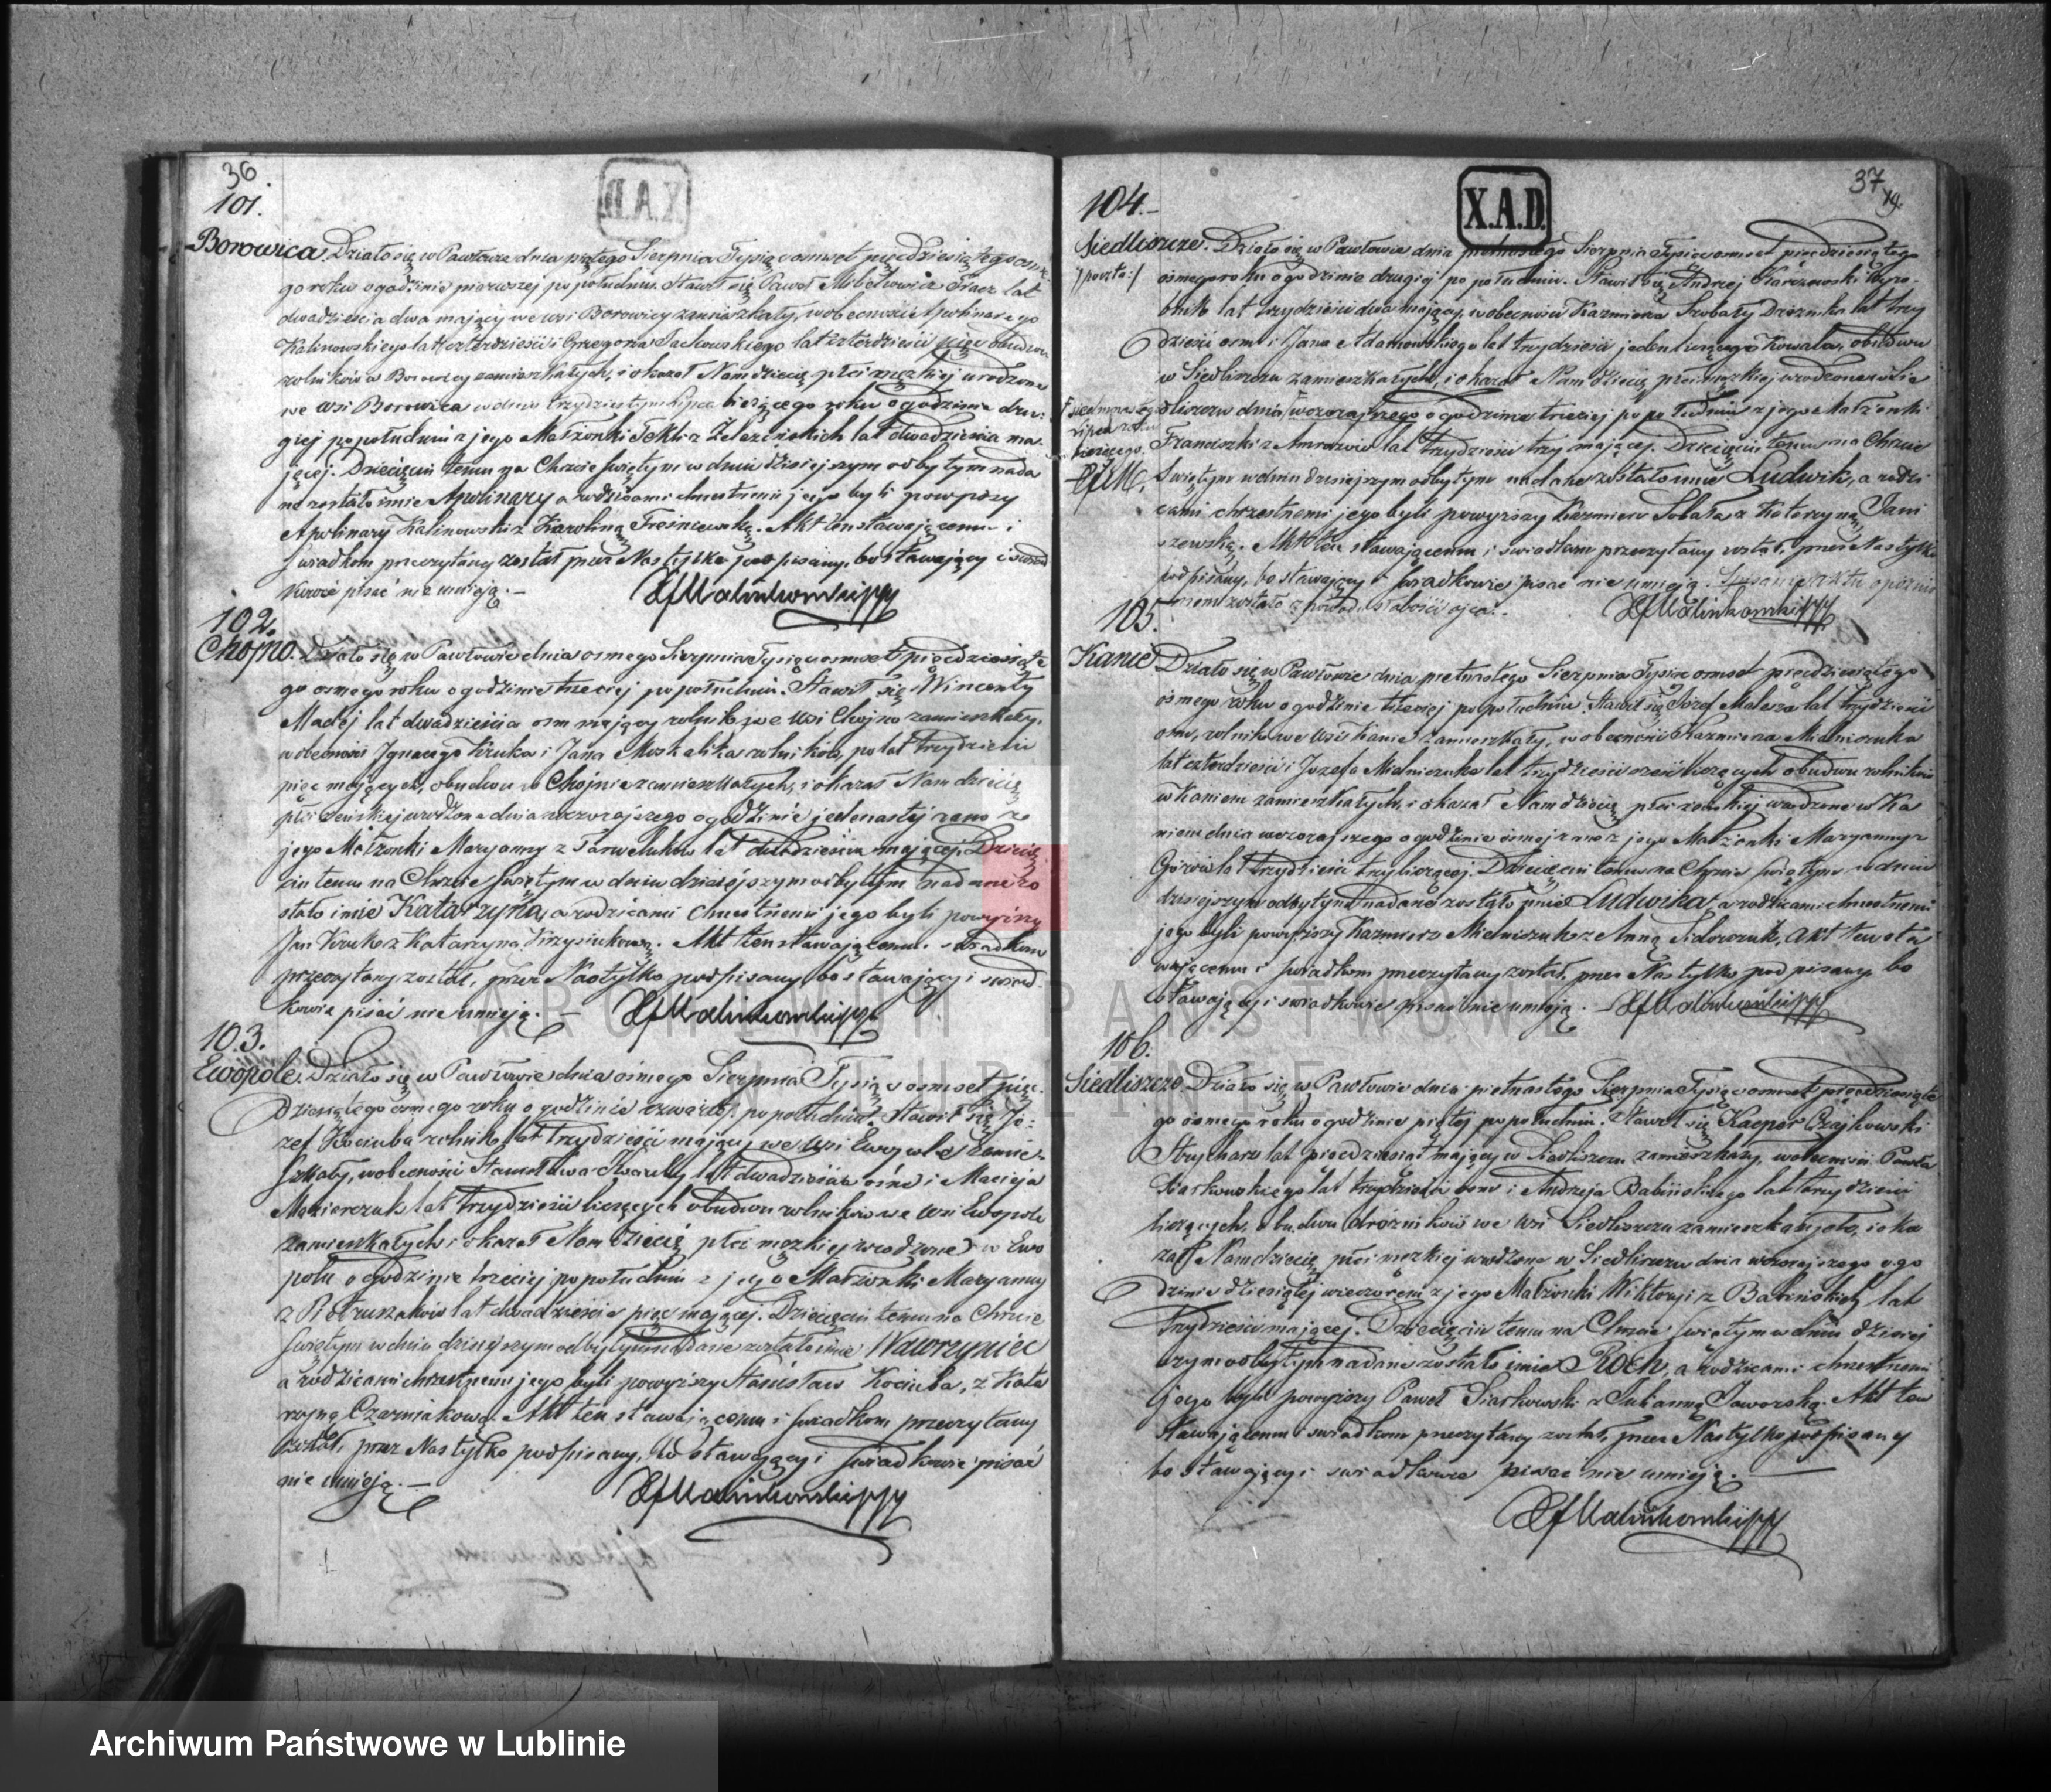 36
101.
Borowica. Działo się w Pawłowie dnia piątego Sierpnia Tysiąc osmset pięćdziesiątego osme
go roku o godzinie pierwszej po południu. Stawił się Paweł lat
dwadzieścia dwa mający we wsi Borowicy zamieszkały, w obecności Apolinarego
Kalinowskiego lat czterdzieści i Grzegorza lat czterdzieści pięć obudwu
rolników w Borowicy zamieszkałych, i okazał Nam dziecię płci męzkiej urodzone
we wsi Borowica w dniu trzydziestym Lipca bieżącego roku o godzinie dru
giej po południu z jego Małżonki Tekli z Żelezińskich lat dwadzieścia ma
jącej. Dziecięciu temu na Chrzcie Świętym w dniu dzisiejszym odbytym nada
ne zostało imie Apolinary a rodzicami chrzestnemi jego byli powyższy
Apolinary Kalinowski z Karoliną Treśniewską. Akt ten stawającemu i
świadkom przeczytany został przez Nas tylko podpisany, bo stawający i świad
kowie pisać nie umieją. —
102.
Chojno. Działo się w Pawłowie dnia osmego Sierpnia Tysiąc osmset pięćdziesiąte
go osmego roku o godzinie trzeciej po południu. Stawił się Wincenty
Madej lat dwadzieścia osm mający rolnik, we wsi Chojno zamieszkały,
w obecności Ignacego Kruka i Jana Moskalika rolników, po lat trzydzieści
pięć mających, obudwu w Chojnie zamieszkałych, i okazał Nam dziecię
płci żeńskiej urodzone dnia wczorajszego o godzinie jedenastej rano z
jego Małżonki Maryanny z lat dwadzieścia mającej. Dziecię
ciu temu na Chrzcie Świętym w dniu dzisiejszym odbytym nadane zo
stało imie Katarzyna, a rodzicami chrzestnemi jego byli powyższy
Jan Kruk z Katarzyną Krzysiukową. Akt ten stawającemu i świadkom
przeczytany został, przez Nas tylko podpisany bo stawający i świad
kowie pisać nie umieją. —
103.
Ewopole. Działo się w Pawłowie dnia ósmego Sierpnia Tysiąc osmset pięć
dziesiątego osmego roku o godzinie czwartej po południu. Stawił się Jó
zef Kociuba rolnik, lat trzydzieści mający we wsi Ewopole zamie
szkały, w obecności Stanisława lat dwadzieścia osm i Macieja
lat trzydzieści liczących obudwu rolników we wsi Ewopolu
zamieszkałych i okazał Nam dziecię płci męzkiej urodzone w Ewo
polu o godzinie trzeciej po południu z jego Małżonki Maryanny
z Pietruszaków lat dwadzieścia pięć mającej. Dziecięciu temu na Chrzcie
Świętym w dniu dzisiejszym odbytym nadane zostało imie Wawrzyniec
a rodzicami chrzestnemi jego byli powyższy Stanisław Kociuba, z Kata
rzyną Czerniakową. Akt ten stawającemu i świadkom przeczytany
został, przez Nas tylko podpisany, bo stawający i świadkowie pisać
nie umieją. —
37
19.
X.A.D.
104.—
Siedliszcze. Działo się w Pawłowie dnia Sierpnia Tysiąc osmset pięćdziesiątego
osmego roku o godzinie drugiej po południu. Stawił się Andrzej Karczewski Wyro
bnik lat trzydzieści dwa mający, w obecności Kazimierza Dróżnika lat trzy
dzieści osm i Jana Adamowskiego lat trzydzieści jeden liczącego Kowala, obudwu
w Siedliszczu zamieszkałych, i okazał Nam dziecię płci męzkiej urodzone w Sie
dliszczu dnia wczorajszego o godzinie trzeciej po południu z jego Małżonki
Franciszki z lat trzydzieści trzy mającej. Dziecięciu temu na Chrzcie
Świętym w dniu dzisiejszym odbytym nadane zostało imie Ludwik, a rodzi
cami chrzestnemi jego byli powyższy Kazimierz z Katarzyną Jani
szewską. Akt ten stawającemu i świadkom przeczytany został, przez Nas tylko
podpisany, bo stawający i świadkowie pisać nie umieją. Spisanie aktu opóźnio
nem zostało z powodu słabości ojca.
siedmnastego
lipca roku
bieżącego.
105.
Kanie. Działo się w Pawłowie dnia pietnastego Sierpnia Tysiąc osmset pięćdziesiątego
ósmego roku o godzinie trzeciej po południu. Stawił się Józef Malesza lat trzydzieści
osm, rolnik we wsi Kanie zamieszkały, w obecności Kazimierza Mielniczuka
lat czterdzieści i Józefa Mielniczuka lat trzydzieści sześć liczących obudwu rolników
w Kaniem zamieszkałych, i okazał Nam dziecię płci żeńskiej urodzone w Ka
niem dnia wczorajszego o godzinie ósmej rano z jego Małżonki Maryanny z
lat trzydzieści trzy liczącej. Dziecięciu temu na Chrzcie Świętym w dniu
dzisiejszym odbytym nadane zostało imie Ludwika, a rodzicami chrzestnemi
jego byli powyższy Kazimierz Mielniczuk z Anną Sidorczuk. Akt ten sta
wającemu i świadkom przeczytany został, przez Nas tylko podpisany bo
stawający i świadkowie pisać nie umieją. —
106.
Siedliszcze. Działo się w Pawłowie dnia pietnastego Sierpnia Tysiąc osmset pięćdziesiąte
go ósmego roku o godzinie piątej po południu. Stawił się Kacper Czajkowski
Strycharz lat pięćdziesiąt mający w Siedliszczu zamieszkały, w obecności Pawła
Siarkowskiego lat trzydzieści osm i Andrzeja Babińskiego lat trzydzieści
liczących, obudwu dróżników we wsi Siedliszczu zamieszkałych, i oka
zał Nam dziecię płci męzkiej urodzone w Siedliszczu dnia wczorajszego o go
dzinie dziesiątej wieczorem z jego Małżonki Wiktoryi z Babińskich lat
trzydzieści mającej. Dziecięciu temu na Chrzcie Świętym w dniu dzisiej
szym odbytym nadane zostało imie Roch, a rodzicami chrzestnemi
jego byli powyższy Paweł Siarkowski z Julianną Jaworską. Akt ten
stawającemu i świadkom przeczytany został, przez Nas tylko podpisany
bo stawający i świadkowie pisać nie umieją. —
ARCHIWUM PAŃSTWOWE
W LUBLINIE
Archiwum Państwowe w Lublinie